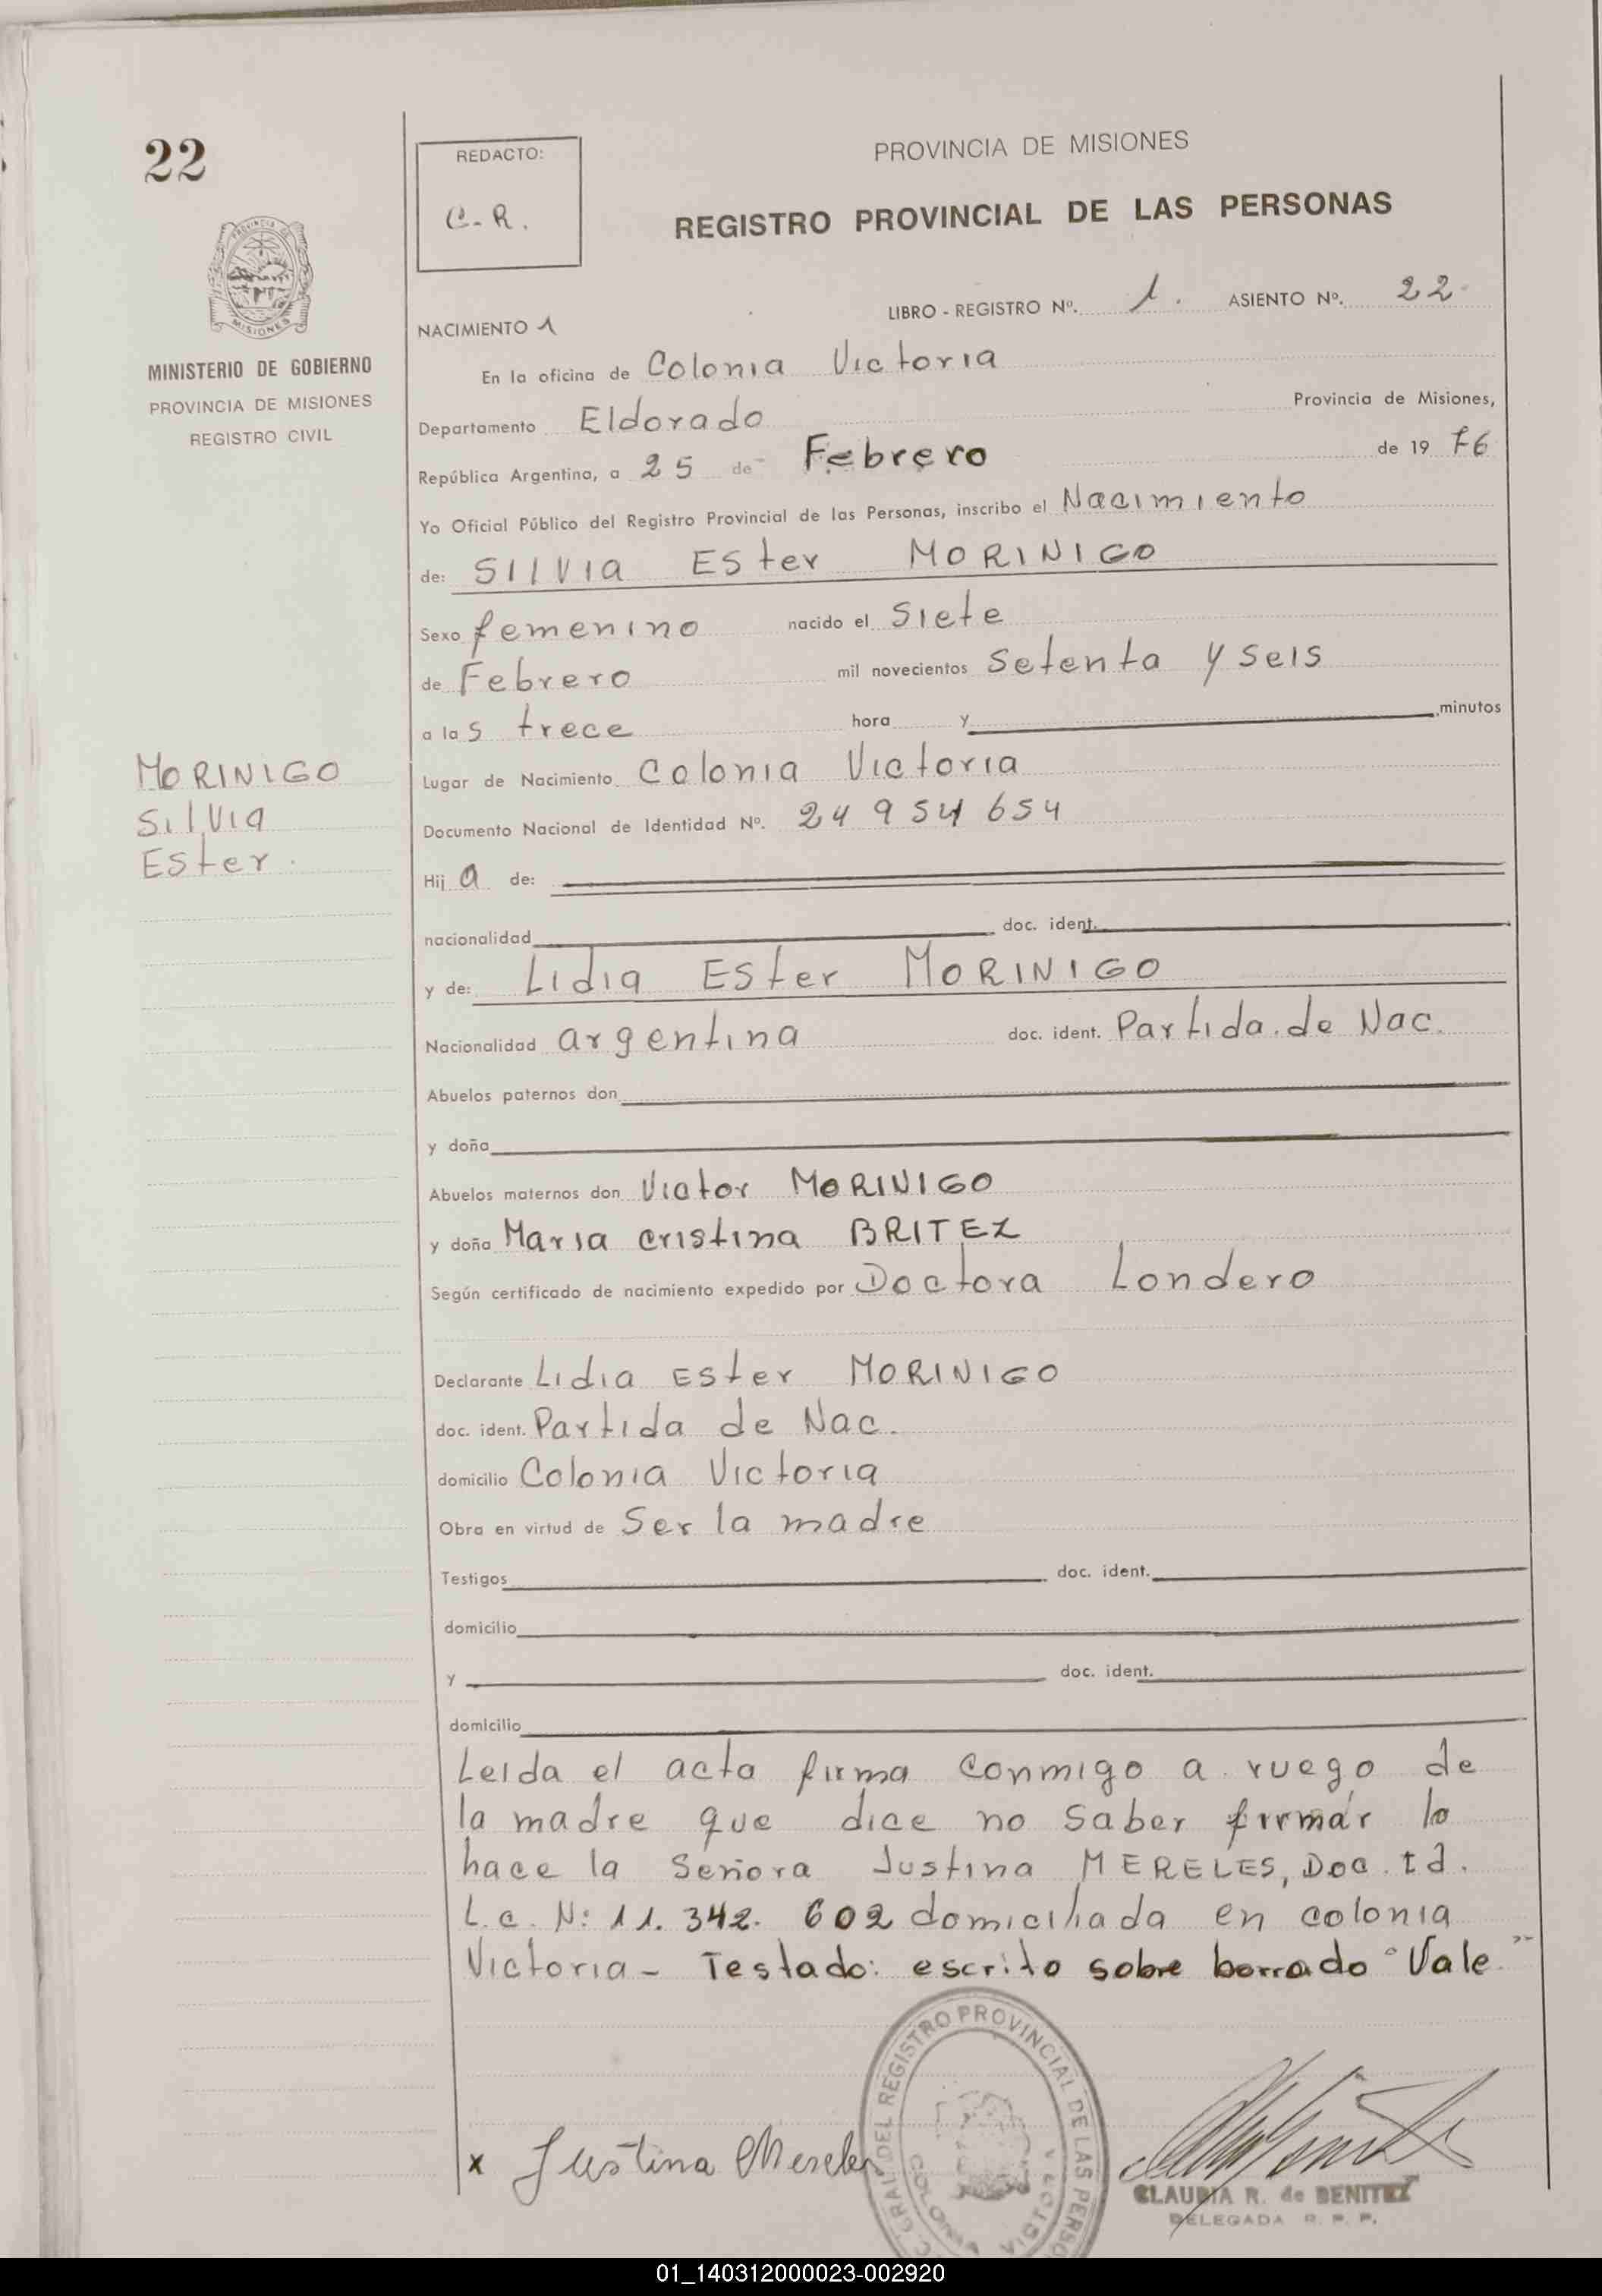 22
REDACTO:
C-R.
PROVINCIA DE MISIONES
REGISTRO PROVINCIAL DE LAS PERSONAS
LIBRO - REGISTRO Nº. 1. ASIENTO Nº. 22
NACIMIENTO 1
MINISTERIO DE GOBIERNO
PROVINCIA DE MISIONES
REGISTRO CIVIL
En la oficina de Colonia Victoria
Departamento Eldorado Provincia de Misiones,
República Argentina, a 25 de Febrero de 19 76
Yo Oficial Público del Registro Provincial de las Personas, inscribo el Nacimiento
de: SILVIA Ester MORINIGO
Sexo femenino nacido el Siete
de Febrero mil novecientos Setenta y seis
a las trece hora y minutos
MORINIGO
Silvia
Ester.
Lugar de Nacimiento Colonia Victoria
Documento Nacional de Identidad Nº. 24 954 654
Hija de:
nacionalidad doc. ident.
y de: Lidia Ester MORINIGO
Nacionalidad argentina doc. ident. Partida de Nac.
Abuelos paternos don
y doña
Abuelos maternos don Victor MORINIGO
y doña Maria Cristina BRITEZ
Según certificado de nacimiento expedido por Doctora Londero
Declarante Lidia Ester MORINIGO
doc. ident. Partida de Nac.
domicilio Colonia Victoria
Obra en virtud de Ser la madre
Testigos doc. ident.
domicilio
y doc. ident.
domicilio
Leida el acta firma conmigo a ruego de
la madre que dice no saber firmar lo
hace la Señora Justina MERELES, Doc. Id.
L.c. N: 11. 342. 602 domiciliada en colonia
Victoria - Testado: escrito sobre borrado "Vale"-
x Justina Mereles
GRAL DEL REGISTRO PROVINCIAL DE LAS PERSO
COLONIA VICTORIA
CLAUDIA R. de BENITEZ
DELEGADA R. P. P.
01_140312000023-002920